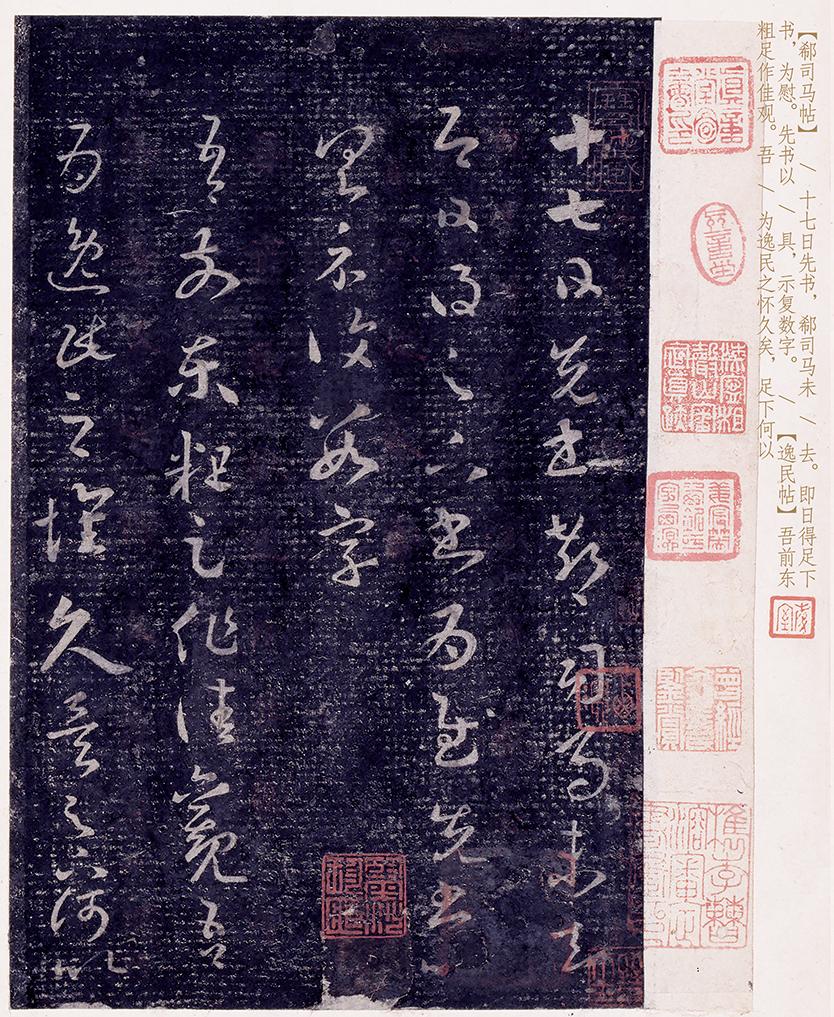 【郗司马帖】 / 十七日先书，郗司马未 / 去。即日得足下
书，为慰。先书以 / 具，示复数字。 / 【逸民帖】吾前东
粗足作佳观。吾 / 为逸民之怀久矣，足下何以
十七日先書郗司馬未去
即日得足下書為慰先書以
具示復數字
吾前東粗足作佳觀吾
為逸民之懷久矣足下何以